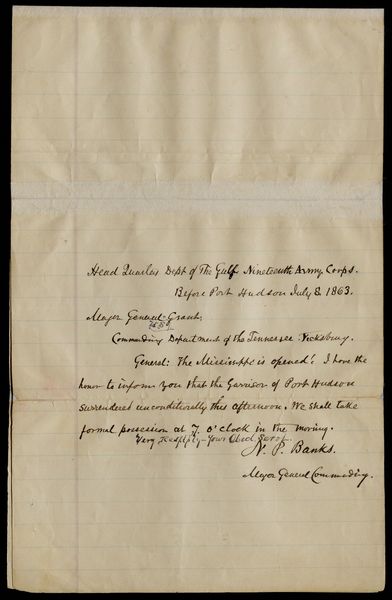 Head Quarters Dept of The Gulf Nineteenth Army Corps.
Before Port Hudson July 8 1863.
Major General Grant,
Commanding Department of the Tennessee Vicksburg.
General: The Mississippi is opened! I have the
honor to inform you that the Garrison of Port Hudson
surrendered unconditionally this afternoon. We shall take
formal possession at 7. o'clock in the morning.
Very Respfly Your Obed Servt
N. P. Banks.
Major General Commanding.